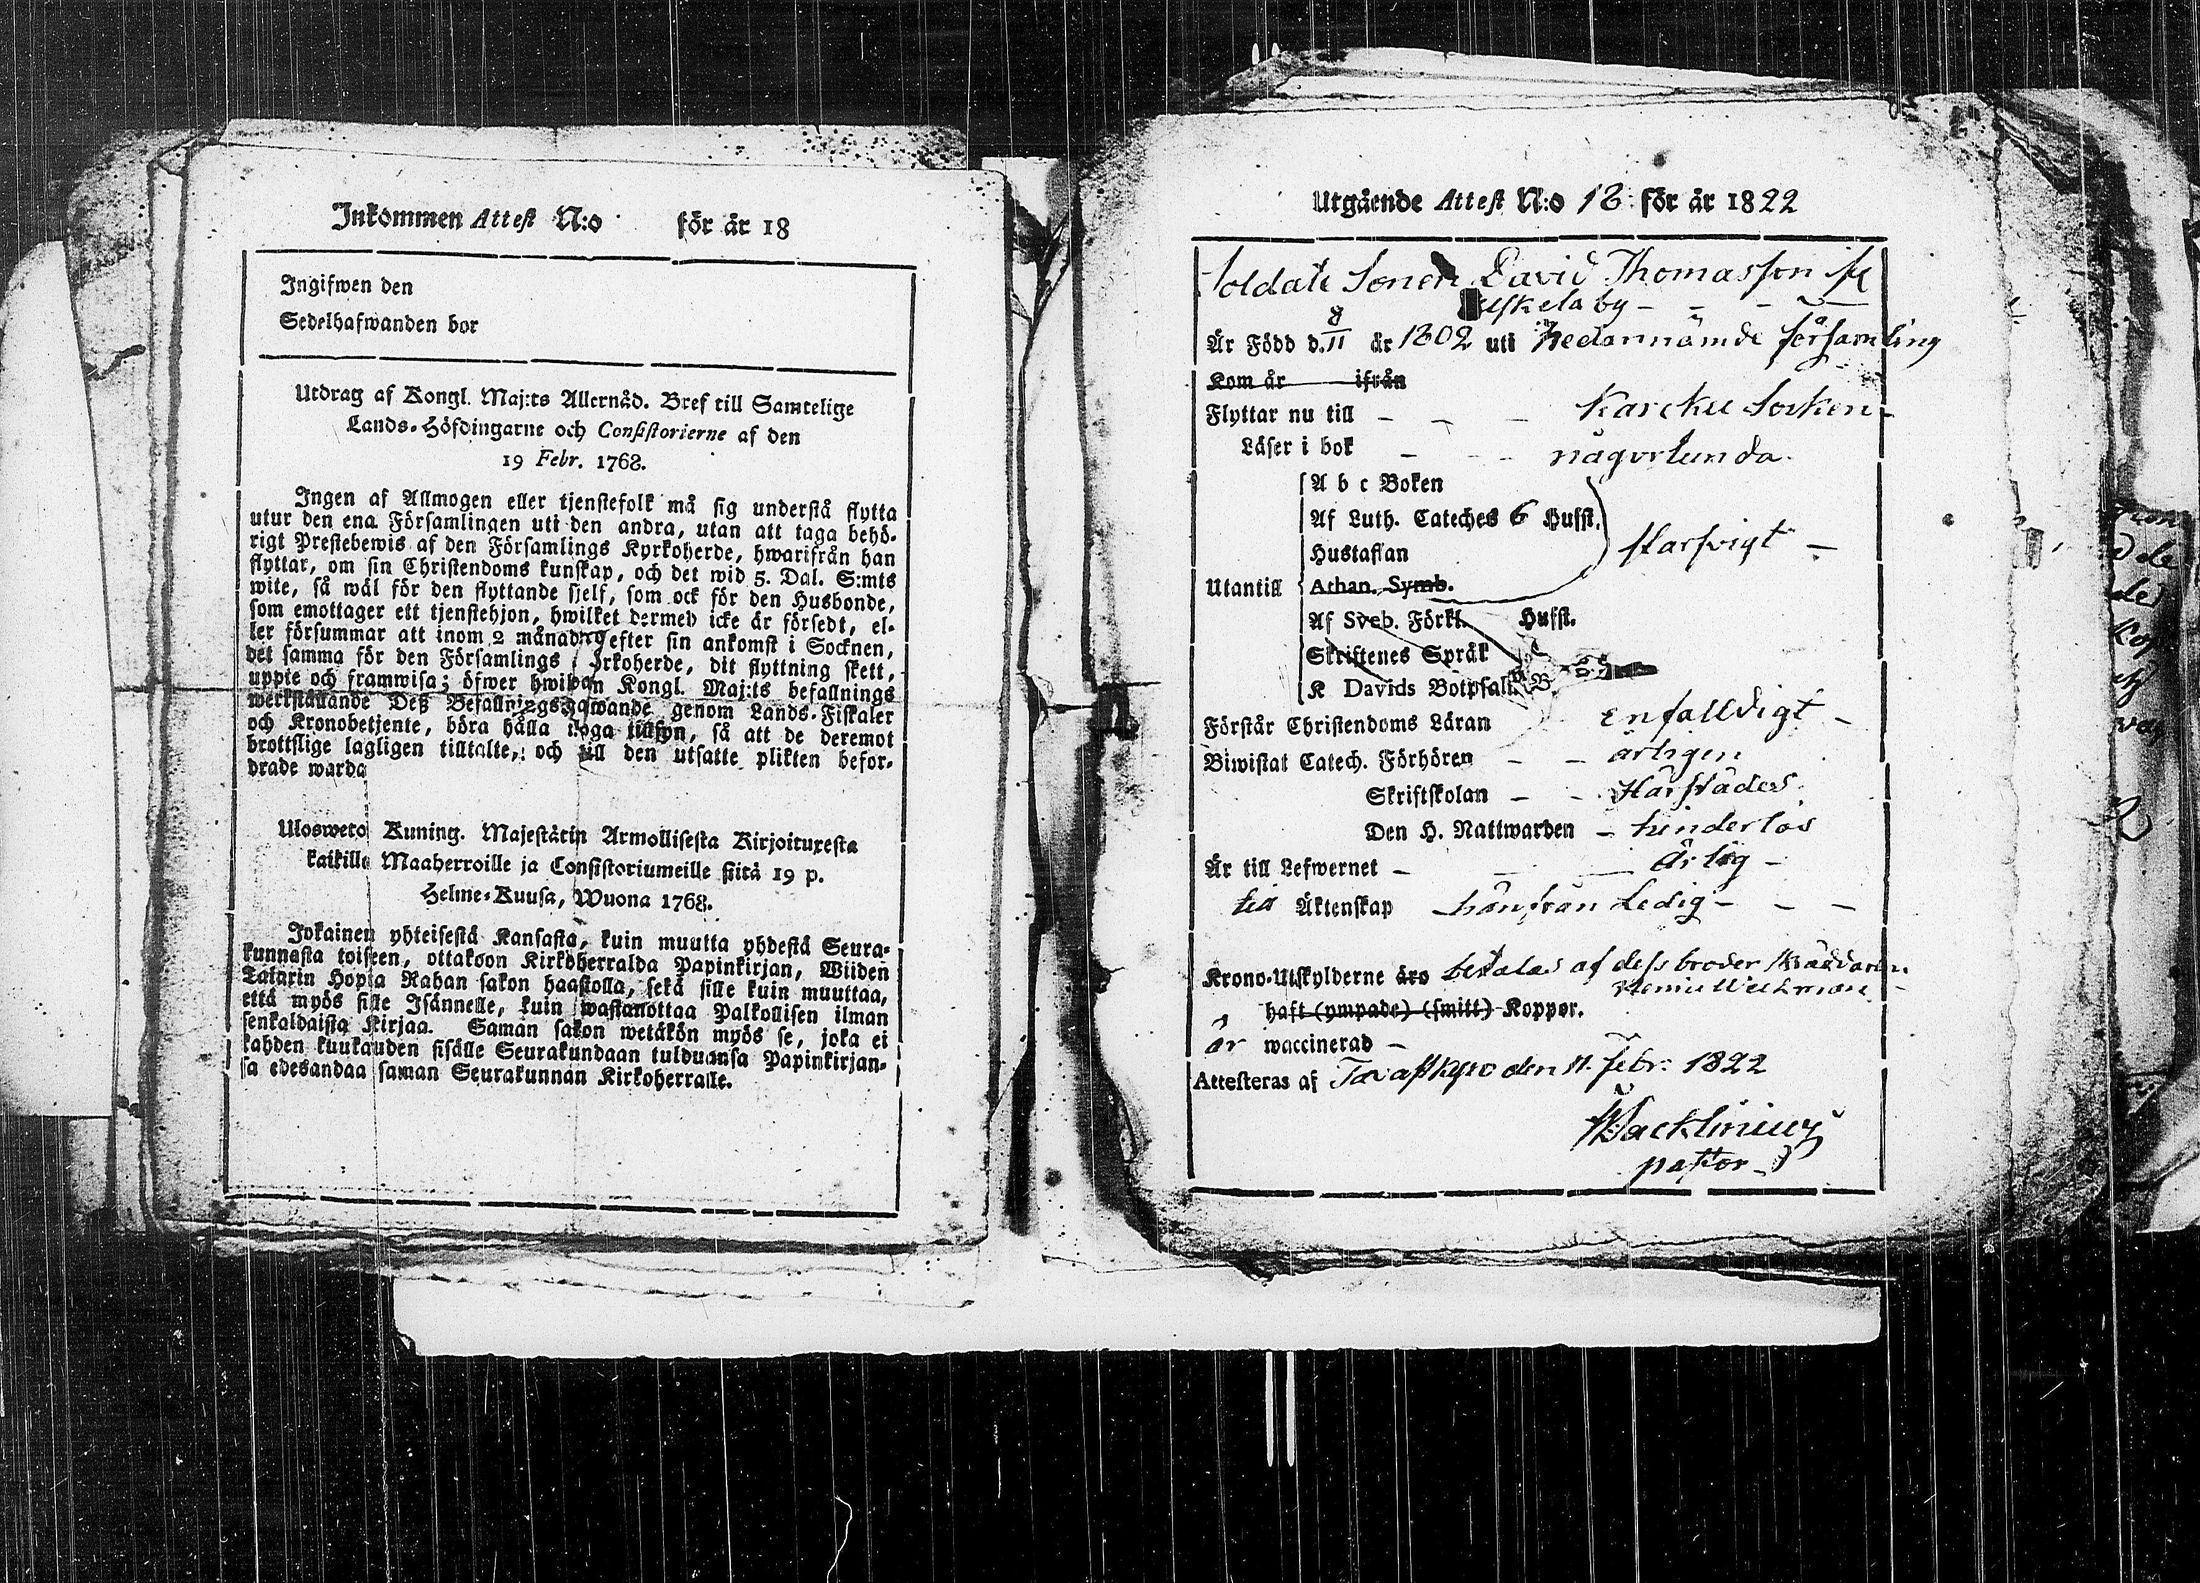 Inkommen Attest N:o för år 18
Ingifwen den
Sedelhafwanden bor
Utdrag af Kongl. Maj:ts Allernåd. Bref till Samtelige
Lands-Höfdingarne och Consistorierne af den
19 Febr. 1768.
Ingen af Allmogen eller tjenstefolk må sig understå flytta
utur den ena Församlingen uti den andra, utan att taga behö-
rigt Prestebewis af den Församlings Kyrkoherde, hwarifrån han
flyttar, om sin Christendoms kunskap, och det wid 5. Dal. S:mts
wite, så wäl för den flyttande sjelf, som ock för den Husbonde,
som emottager ett tjenstehjon, hwilket dermed icke är försedt, el-
ler försummar att inom 2 månader efter sin ankomst i Socknen,
det samma för den Församlings Kyrkoherde, dit flyttning skett,
uppte och framwisa; öfwer hwilket Kongl. Maj:ts befallnings
werkställande Deß Befallningshafwande genom Lands-Fiskaler
och Kronobetjente, böra hålla noga tillsyn, så att de deremot
brottslige lagligen tilltalte, och till den utsatte plikten befor-
drade warda
Ulosweto Kuning. Majestätin Armollisesta Kirjoituxesta
kaikille Maaherroille ja Consistoriumeille siitä 19 p.
Helme-Kuusa, Wuona 1768.
Jokainen yhteisestä Kansasta, kuin muutta yhdestä Seura-
kunnasta toiseen, ottakoon Kirkoherralda Papinkirjan, Wiiden
Talarin Hopia Rahan sakon haastolla, sekä sille kuin muuttaa,
että myös sille Isännelle, kuin wastanottaa Palkollisen ilman
senkaldaista Kirjaa. Saman sakon wetäkön myös se, joka ei
kahden kuukauden sisälle Seurakundaan tulduansa Papinkirjan-
sa edesandaa saman Seurakunnan Kirkoherralle.
Utgående Attest N:o 18 för år 1822
Soldats Sonen David Thomasson
by
Är Född d. 8/11 år 1802 uti nedannämde församling
Kom år ifrån
Flyttar nu till Karcku Socken
Läser i bok någorlunda
A b c Boken
Af Luth. Cateches 6 Hufst.
Hustaflan skarsvigt
Utantill Athan. Symb.
Af Sveb. Förkl. Hufst.
Skriftenes Språk
K Davids Botpsal.
Förstår Christendoms Läran enfalldigt
Biwistat Catech. Förhören årligen
Skriftskolan Härstädes
Den H. Nattwarden hinderlös
Är till Lefwernet ärlig
till Äktenskap härifrån Ledig
Krono-Utskylderne äro betalas af dess broder Skräddaren
haft (ympade) (smitt) Koppor.
är waccinerad
Attesteras af Tavastkyro den 11. Febr: 1822
pastor